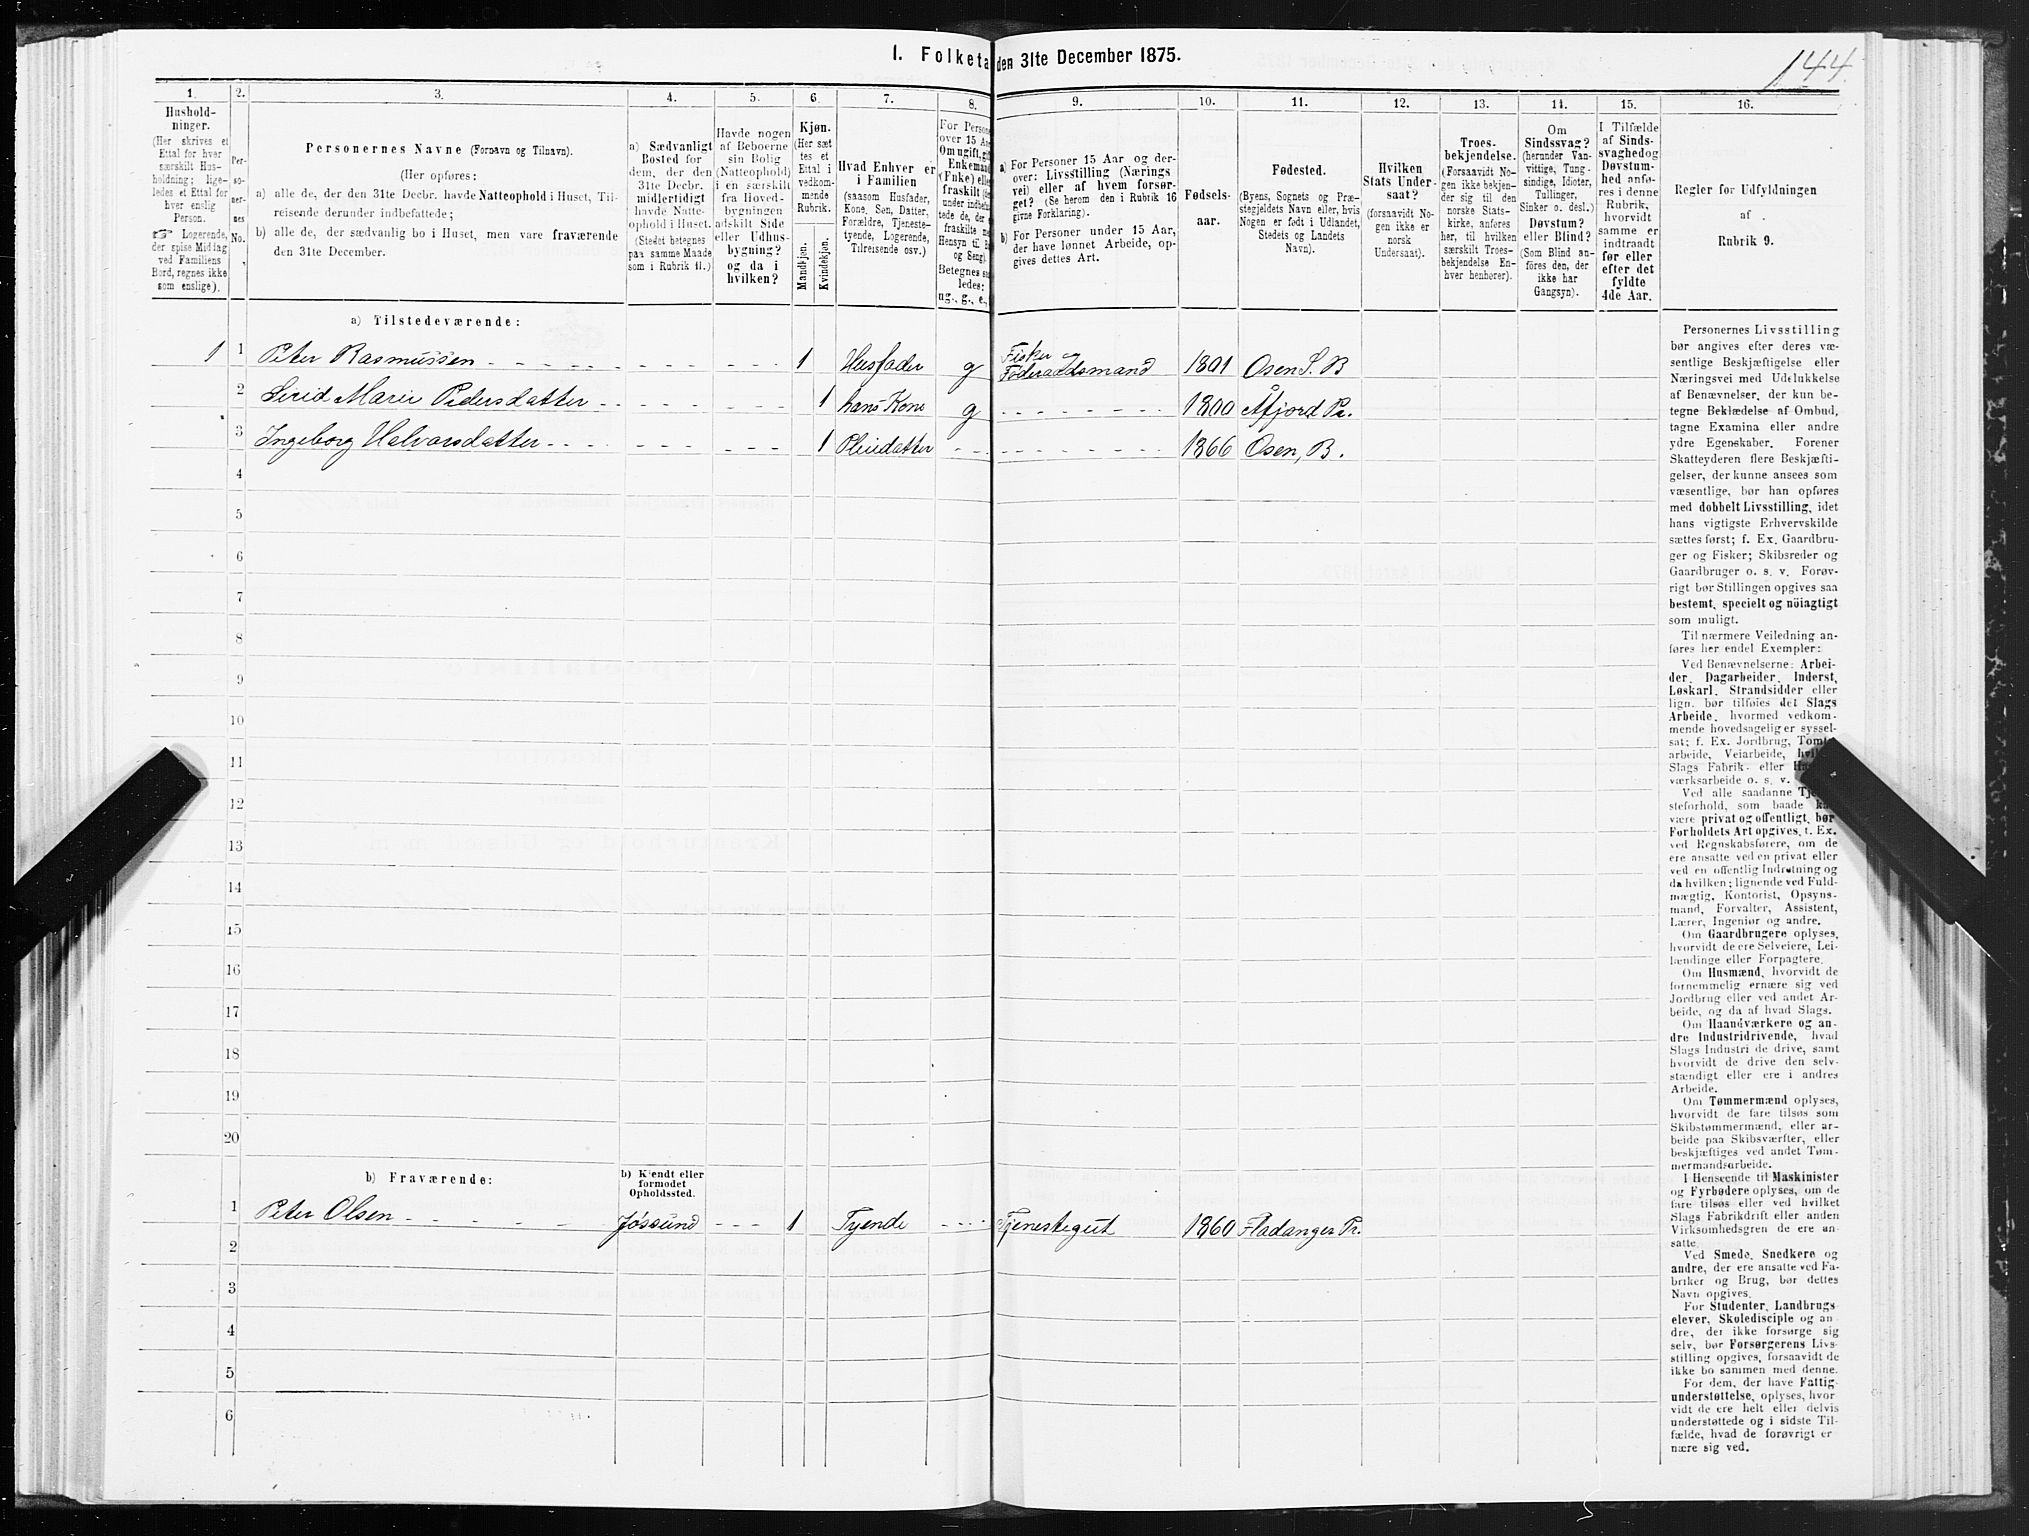 I. Folketa den 31te December 1875.
144.
1.
2.
3.
4.
5.
6.
7.
8.
9.
10.
11.
12.
13.
14.
15.
16.
Hushold-
ninger.
(Her skrives et
Ettal for hver
særskilt Hus-
holdning; lige-
ledes et Ettal for
hver enslig
Person.
☞ Logerende,
der spise Middag
ved Familiens
Bord, regnes ikke
som enslige).
Per-
so-
ner-
nes
No.
Personernes Navne (Fornavn og Tilnavn).
(Her opføres:
a) alle de, der den 31te Decbr. havde Natteophold i Huset, Til-
reisende derunder indbefattede;
b) alle de, der sædvanlig bo i Huset, men vare fraværende
den 31te December.
a) Sædvanligt
Bosted for
dem, der den
31te Decbr.
midlertidigt
havde Natte-
ophold i Huset.
(Stedet betegnes
paa samme Maade
som i Rubrik 11.)
Havde nogen
af Beboerne
sin Bolig
(Natteophold)
i en særskilt
fra Hoved-
bygningen
adskilt Side
eller Udhus-
bygning?
og da i
hvilken?
Kjøn.
(Her sæt-
tes et
Ettal i
vedkom-
mende
Rubrik.
Mandkjøn.
Kvindekjøn.
Hvad Enhver er
i Familien
(saasom Husfader,
Kone, Søn, Datter,
Forældre, Tjeneste-
tyende, Logerende,
Tilreisende osv.)
For Persone
over 15 Aa
Om ugift, gif
Enkemand
(Enke) elle
fraskilt (de
under indbefat
tede de, der e
fraskilte me
Hensyn til B
og Seng).
Betegnes sa
ledes:
ug., g., e.,
a) For Personer 15 Aar og der-
over: Livsstilling (Nærings
vei) eller af hvem forsør-
get? (Se herom den i Rubrik 16
givne Forklaring).
b) For Personer under 15 Aar,
der have lønnet Arbeide, op-
gives dettes Art.
Fødsels-
aar.
Fødested.
(Byens, Sognets og Præ-
stegjeldets Navn eller, hvis
Nogen er født i Udlandet,
Stedets og Landets
Navn).
Hvilken
Stats Under-
saat?
(forsaavidt No-
gen ikke er
norsk
Undersaat).
Troes-
bekjendelse.
(Forsaavidt No-
gen ikke bekjen-
der sig til den
norske Stats-
kirke, anføres
her, til hvilken
særskilt Troes-
bekjendelse En-
hver henhører).
Om
Sindssvag?
(herunder Van-
vittige, Tung-
sindige, Idioter,
Tullinger,
Sinker o. desl.)
Døvstum?
eller Blind?
(Som Blind an-
føres den, der
ikke har
Gangsyn).
I Tilfælde
af Sinds-
svaghed og
Døvstum-
hed anfø-
res i denne
Rubrik,
hvorvidt
samme er
indtraadt
før eller
efter det
fyldte
4de Aar.
Regler for Udfyldningen
af
Rubrik 9.
a) Tilstedeværende:
1 1 Peter Rasmussen 1 Husfader g Fisker og Føderaadsmand 1801 Osen S. B
2 Sirid Marie Pedersdatter 1 hans Kone g 1800 Åfjord Pr.
3 Ingeborg Halvorsdatter 1 Pleiedatter 1866 Osen, B.
4
5
6
7
8
9
10
11
12
13
14
15
16
17
18
19
20
b) Fraværende:
b) Kjendt eller
formodet
Opholdssted.
1 Peter Olsen Jøssund 1 Tyende Tjenestegut 1860 Fladanger Pr.
2
3
4
5
6
Personernes Livsstilling
bør angives efter deres væ-
sentlige Beskjæftigelse eller
Næringsvei med Udelukkelse
af Benævnelser, der kun be-
tegne Beklædelse af Ombud,
tagne Examina eller andre
ydre Egenskaber. Forener
Skatteyderen flere Beskjæfti-
gelser, der kunne ansees som
væsentlige, bør han opføres
med dobbelt Livsstilling, idet
hans vigtigste Erhvervskilde
sættes først; f. Ex. Gaardbru-
ger og Fisker; Skibsreder og
Gaardbruger o. s. v. Forøv-
rigt bør Stillingen opgives saa
bestemt, specielt og nöiagtigt
som muligt.
Til nærmere Veiledning an-
føres her endel Exempler:
Ved Benævnelserne: Arbei-
der, Dagarbeider, Inderst,
Løskarl, Strandsidder eller
lign. bør tilføies det Slags
Arbeide, hvormed vedkom-
mende hovedsagelig er syssel-
sat; f. Ex. Jordbrug, Tomte-
arbeide, Veiarbeide,
Slags Fabrik- eller
værksarbeide o. s. v.
Ved alle saadanne
steforhold, som baade
være privat og offentligt, bør
Forholdets Art opgives, t. Ex.
ved Regnskabsførere, om de
ere ansatte ved en privat eller
ved en offentlig Indretning og
da hvilken; lignende ved Fuld-
mægtig, Kontorist, Opsyns-
mand, Forvalter, Assistent,
Lærer, Ingeniør og andre.
Om Gaardbrugere oplyses,
hvorvidt de ere Selveiere, Lei-
lændinge eller Forpagtere.
Om Husmænd, hvorvidt de
fornemmelig ernære sig ved
Jordbrug eller ved andet Ar-
beide, og da af hvad Slags.
Om Haandværkere og an-
dre Industridrivende, hvad
Slags Industri de drive, samt
hvorvidt de drive den selv-
stændigt eller ere i andres
Arbeide.
Om Tømmermænd oplyses,
hvorvidt de fare tilsøs som
Skibstømmermænd, eller ar-
beide paa Skibsværfter, eller
beskjæftiges ved andet Tøm-
mermandsarbeide.
I Henseende til Maskinister
og Fyrbødere oplyses, om de
fare tilsøs eller ved hvilket
Slags Fabrikdrift eller anden
Virksomhedsgren de ere an-
satte.
Ved Smede, Snedkere og
andre, der ere ansatte ved Fa-
briker og Brug, bør dettes
Navn opgives.
For Studenter, Landbrugs-
elever, Skoledisciple og an-
dre, der ikke forsørge sig
selv, bør Forsørgerens Livs-
stilling opgives, forsaavidt de
ikke bo sammen med denne.
For dem, der have Fattig-
understøttelse, oplyses, hvor-
vidt de ere helt eller delvis
understøttede og i sidste Til-
fælde, hvad de forøvrigt er-
nære sig ved.